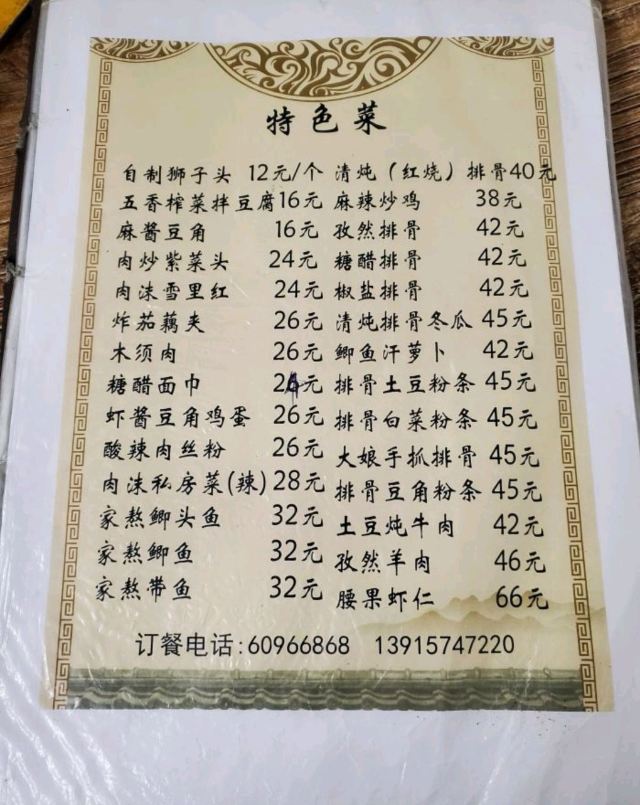 特色菜
自制狮子头 12元/个 清炖（红烧）排骨40元
五香榨菜拌豆腐16元 麻辣炒鸡 38元
麻酱豆角 16元 孜然排骨 42元
肉炒紫菜头 24元 糖醋排骨 42元
肉沫雪里红 24元 椒盐排骨 42元
炸茄藕夹 26元 清炖排骨冬瓜 45元
木须肉 26元 鲫鱼汗萝卜 42元
糖醋面巾 元 排骨土豆粉条 45元
虾酱豆角鸡蛋 26元 排骨白菜粉条 45元
酸辣肉丝粉 26元 大娘手抓排骨 45元
肉沫私房菜(辣) 28元 排骨豆角粉条 45元
家熬鲫头鱼 32元 土豆炖牛肉 42元
家熬鲫鱼 32元 孜然羊肉 46元
家熬带鱼 32元 腰果虾仁 66元
订餐电话:60966868 13915747220